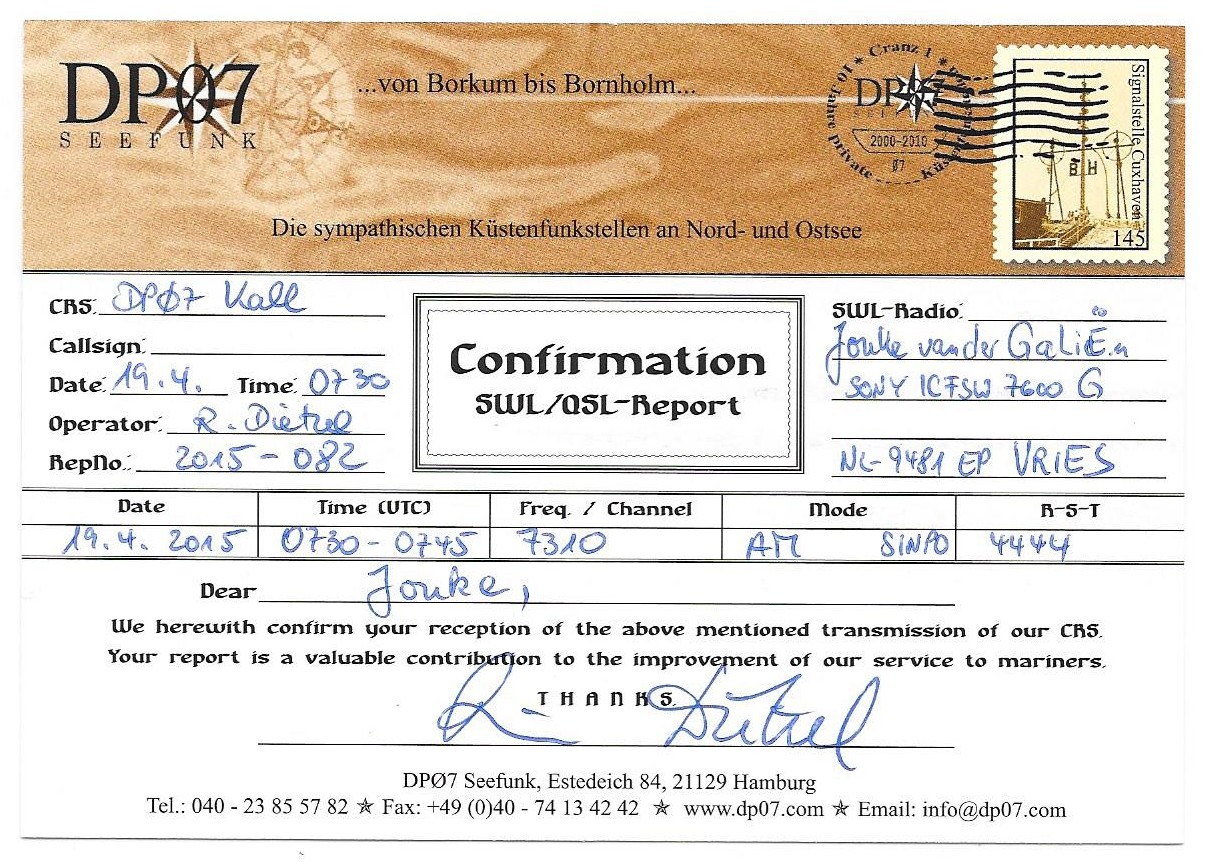 DPØ7
SEEFUNK
...von Borkum bis Bornholm...
Die sympathischen Küstenfunkstellen an Nord- und Ostsee
★ Cranz 1 ★
10 Jahre private
DPØ7
2000-2010
07
Signalstelle Cuxhaven
B H
145
CRS: DPØ7 Kall
Callsign:
Date: 19.4. Time: 0730
Operator: R. Dietzel
RepNo.: 2015-082
Confirmation
SWL/QSL-Report
SWL-Radio:
Jouke van der GaliËn
SONY ICFSW 7600 G
NL-9481 EP VRIES
Date Time (UTC) Freq. / Channel Mode R-S-T
19.4. 2015 0730-0745 7310 AM SINPO 4444
Dear Jouke,
We herewith confirm your reception of the above mentioned transmission of our CRS.
Your report is a valuable contribution to the improvement of our service to mariners.
THANKS
DPØ7 Seefunk, Estedeich 84, 21129 Hamburg
Tel.: 040 - 23 85 57 82 ★ Fax: +49 (0)40 - 74 13 42 42 ★ www.dp07.com ★ Email: info@dp07.com